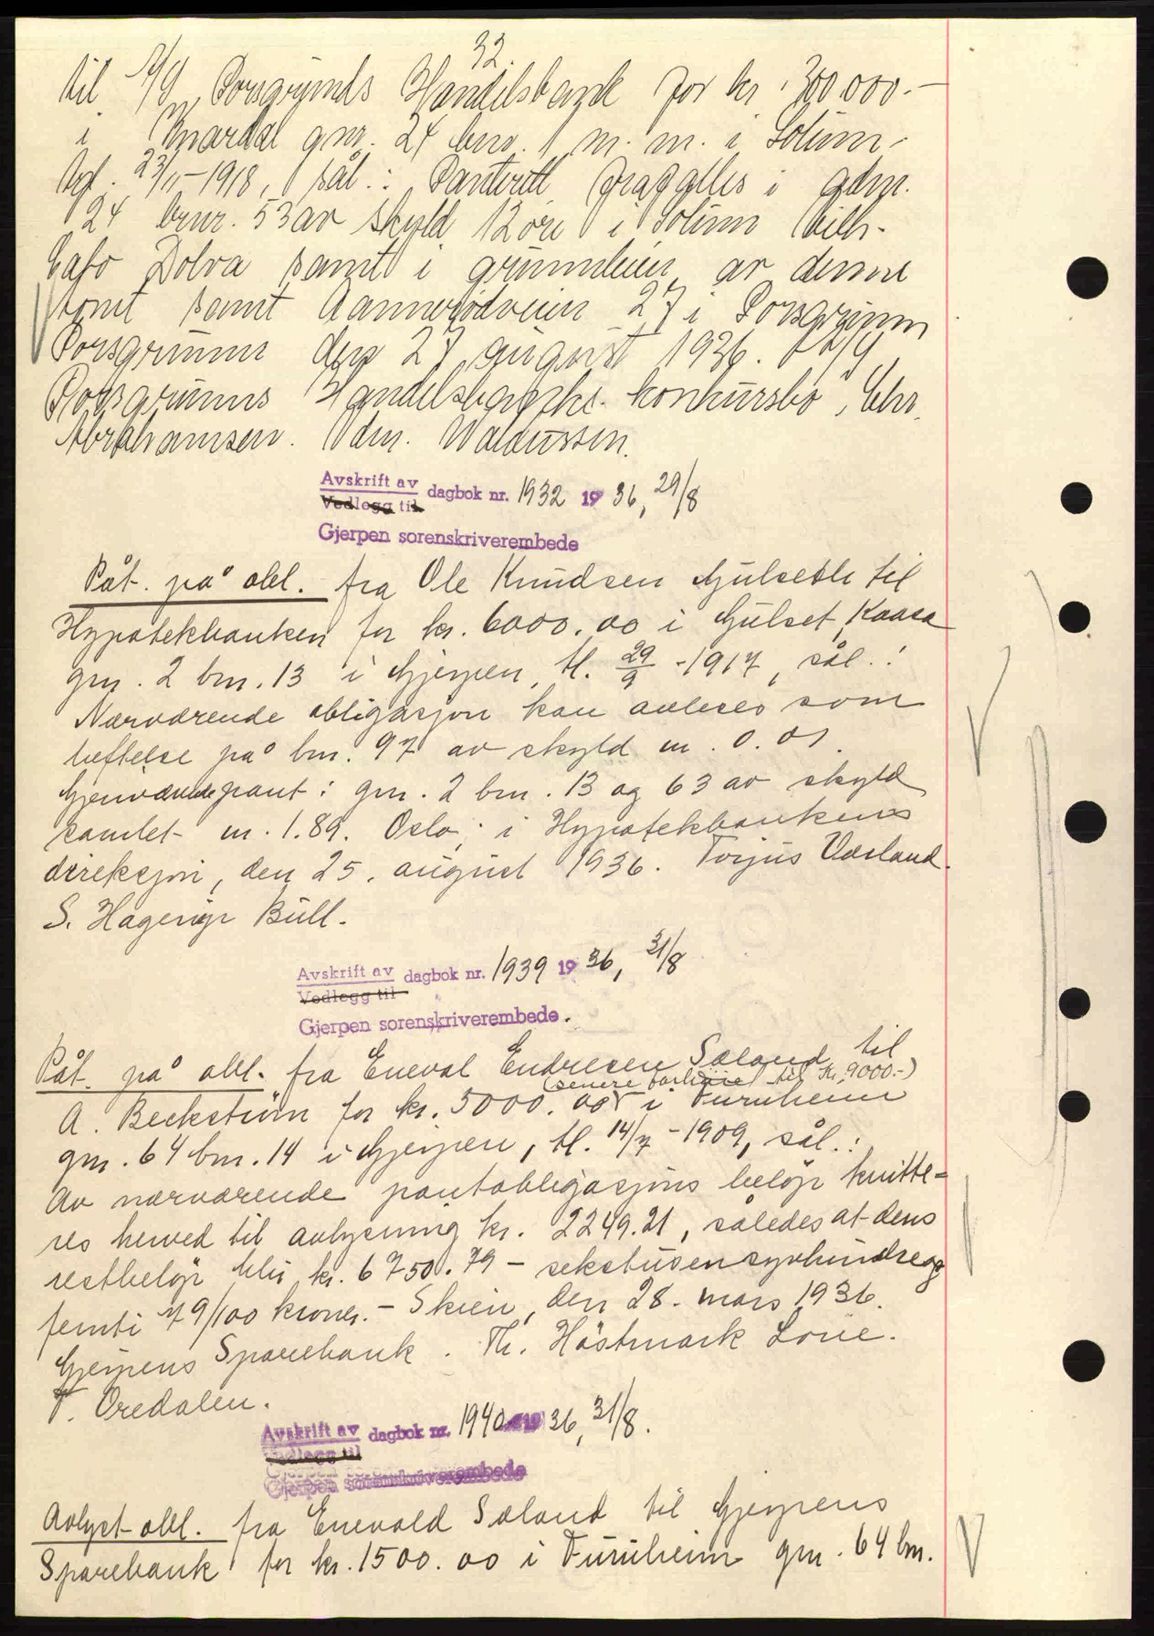 32
til A/S Porsgrunds Handelsbank for kr. 300.000.-
i Mardal gnr. 24 bnr. 1 m.m. i Solum.
tgl. 23/11-1918, sål.: Panterett frafalles i gdnr.
24 brnr. 53 av skyld 12 øre i Solum
Dolva samt i grunnleien av denne
tomt samt Aannerødveien 27 i Porsgrunn
Porsgrunn den 27 august 1936. A/S
Porsgrunns Handelsbanks konkursbo, Chr.
Abrahamsen. Adm. Waldussen.
Avskrift av dagbok nr. 1932 1936, 29/8
Vedlegg til
Gjerpen sorenskriverembede
Påt. på obl. fra Ole Knudsen Gulseth til
Hypotekbanken for kr. 6000.00 i Gulset, Kaasa
gnr. 2 bnr. 13 i Gjerpen, tl. 29/9-1917, sål.:
Nærværende obligasjon kan avleses som
heftelse på bnr. 97 av skyld m. 0.01.
Gjenværende pant: gnr. 2 bnr. 13 og 63 av skyld
samlet m. 1.89. Oslo, i Hypotekbankens
direksjon, den 25. august 1936. Torjus Værland.
S. Hagerup Bull.
Avskrift av dagbok nr. 1939 1936, 31/8
Vedlegg til
Gjerpen sorenskriverembede.
Påt. på obl. fra Eneval Endresen Søland til
(senere forhøiet til Kr. 9000.-)
A. Beckstrøm for kr. 5000.00 i Furuheim
gnr. 64 bnr. 14 i Gjerpen, tl. 14/7-1909, sål.:
Av nærværende pantobligasjons beløp kvitte=
res herved til avlysning kr. 2249.21, således at dens
restbeløp blir kr. 6750.79 - sekstusensyvhundreog
femti 79/100 kroner. - Skien, den 28. mars 1936.
Gjerpens Sparebank. Th. Høstmark Lorie.
T. Øredalen.
Avskrift av dagbok nr. 1940 1936, 31/8.
Vedlegg til
Gjerpen sorenskriverembede
Avlyst obl. fra Enevald Søland til Gjerpens
Sparebank for kr. 1500.00 i Furuheim gnr. 64 bnr.